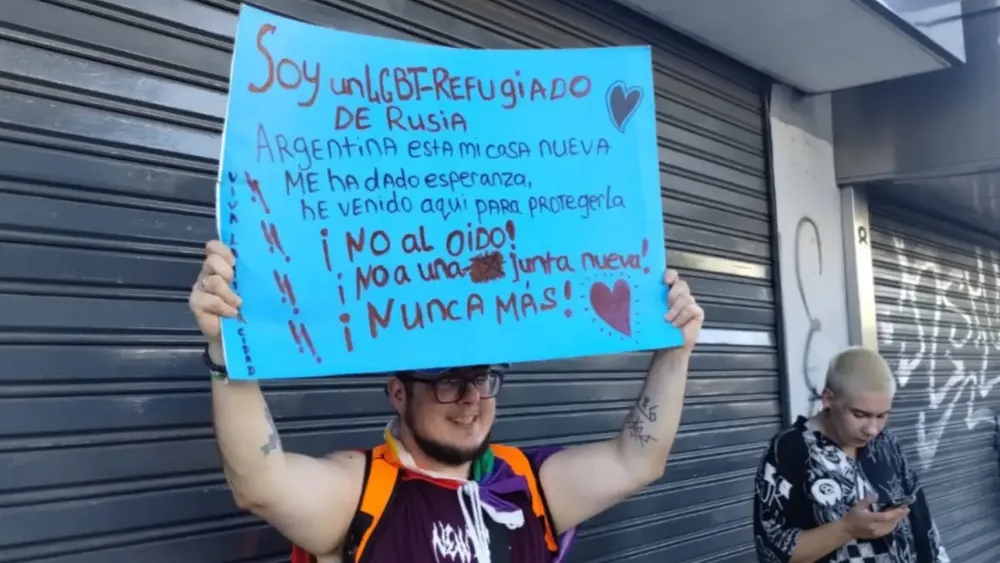 Soy un LGBT-REFUGIADO
DE RUSIA
ARGENTINA ESTA MI CASA NUEVA
ME HA dADO ESPERANZA,
HE VENIDO AQUI PARA PROTEGERLA
¡NO AL OIDO!
¡NO A UNA junta nueva!
¡NUNCA MÁS!
VIVA LA
CIDAD
NEW